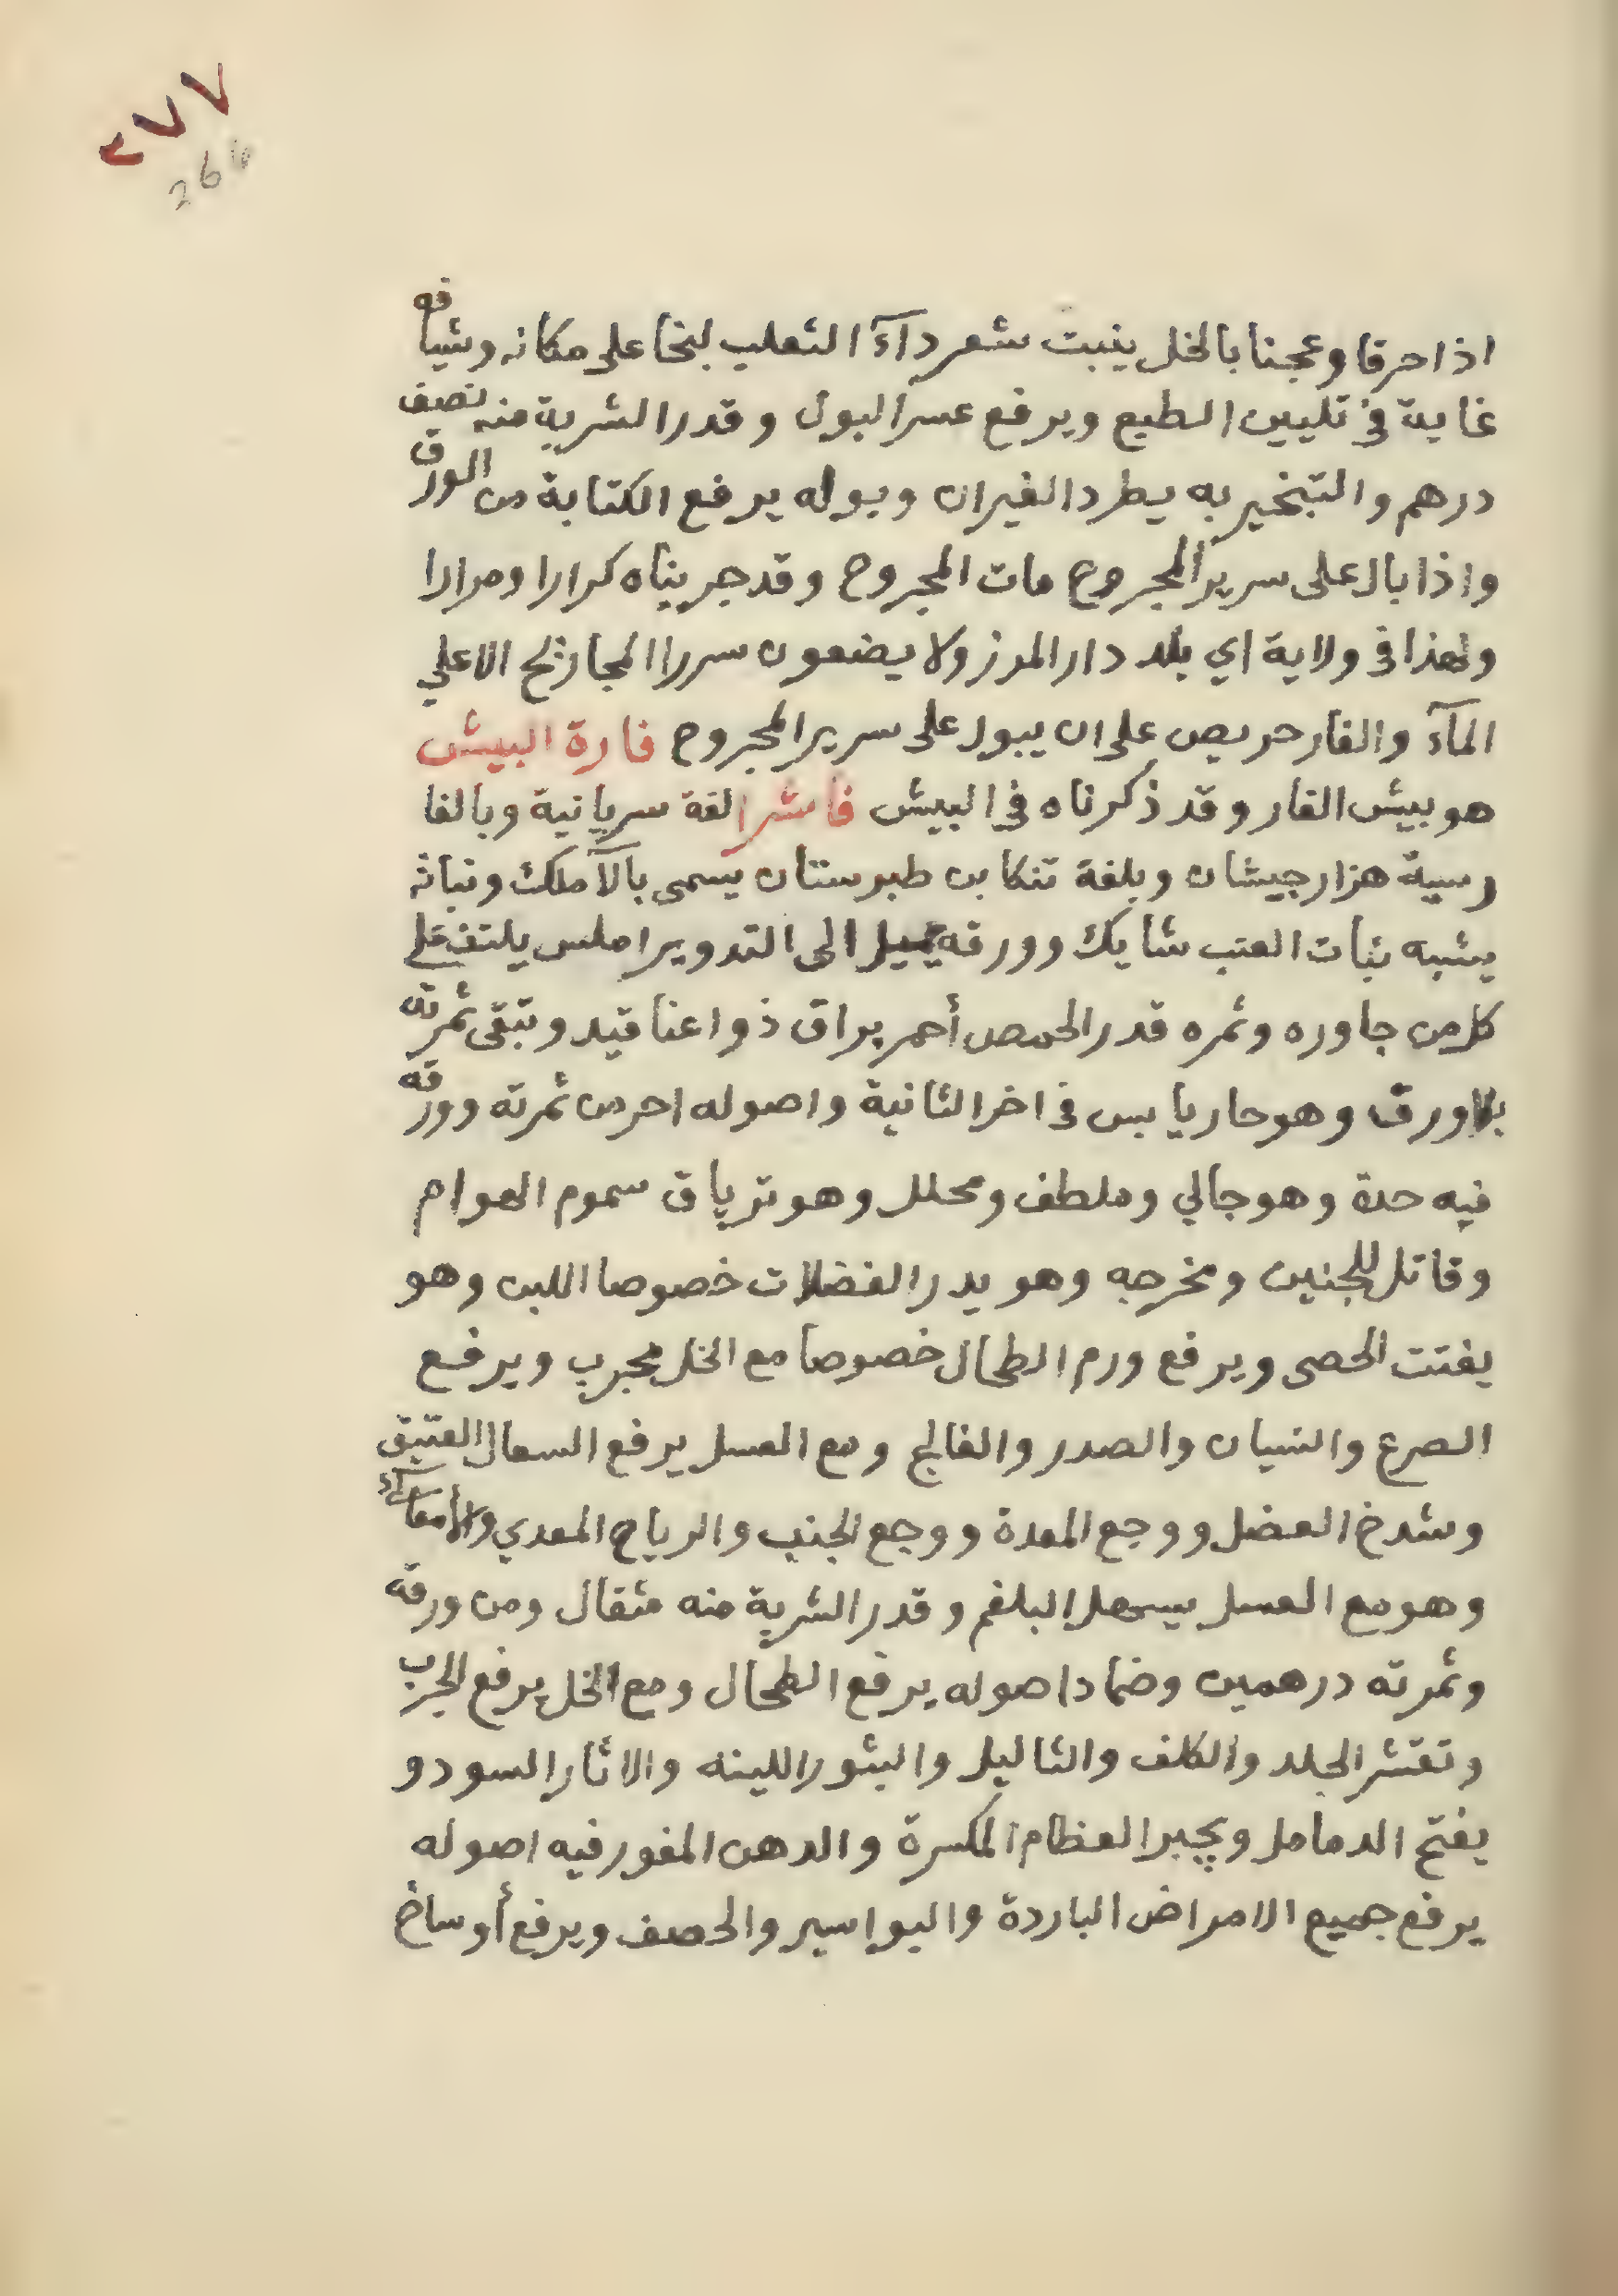 ٢٧٧
اذا احرقا وعجنا بالخل ينبت شعر دآء الثعلب لبخا على مكانه وشيافه
غاية في تليين الطبع ويرفع عسر البول وقدر الشربة منه نصف
درهم والتبخير به يطرد الفيران وبوله يرفع الكتابة من الورق
واذا بال على سرير المجروح مات المجروح وقد جربناه كرارا ومرارا
ولهذا في ولاية اي بلد دار المرز ولا يضعون سررا المجاريح الا على
المآء والفار حريص على ان يبول على سرير المجروح فارة البيش
هو بيش الفار وقد ذكرناه في البيش فاشرا لغة سريانية وبالفا
رسية هزارجيشان وبلغة تنكابن طبرستان يسمى بالآملك ونباته
يشبه نبات العنب شايك وورقه يميل الى التدوير املس يلتف على
كل من جاوره وثمره قدر الحمص أحمر براق ذو اعناقيد وتبقى ثمرته
بلا ورق وهو حار يابس في اخر الثانية واصوله احر من ثمرته وورقه
فيه حدة وهو جالي وملطف ومحلل وهو ترياق سموم الهوام
وقاتل للجنين ومخرجه وهو يدر الفضلات خصوصا اللبن وهو
يفتت الحصى ويرفع ورم الطحال خصوصا مع الخل مجرب ويرفع
الصرع والنسيان والصدر والفالج ومع العسل يرفع السعال العتيق
وشدخ العضل ووجع المعدة ووجع الجنب والرياح المعدي والأمعائي
وهو مع العسل يسهل البلغم وقدر الشربة منه مثقال ومن ورقه
وثمرته درهمين وضمادا صوله يرفع الطحال ومع الخل يرفع الجرب
وتقشر الجلد والكلف والثاليل والبثور اللينه والاثار السود و
يفتح الدمامل ويجبر العظام المكسرة والدهن المفور فيه اصوله
يرفع جميع الامراض الباردة والبواسير والحصف ويرفع أوساخ